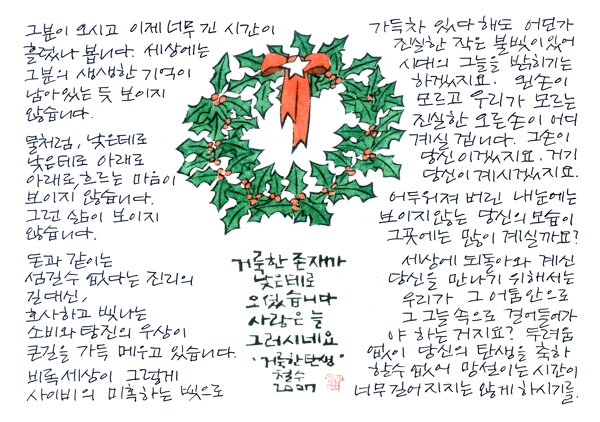 그분이 오시고 이제 너무 긴 시간이
흘렀나 봅니다. 세상에는
그분의 생생한 기억이
남아있는 듯 보이지
않습니다.
물처럼, 낮은데로
낮은데로 아래로
아래로, 흐르는 마음이
보이지 않습니다.
그런 삶이 보이지
않습니다.
돈과 같이는
섬길수 없다는 진리의
길 대신,
호사하고 빛나는
소비와 탕진의 우상이
큰길을 가득 메우고 있습니다.
비록 세상이 그렇게
사이비의 미혹하는 빛으로
가득차 있다 해도 어딘가
진실한 작은 불빛이 있어
시대의 그늘을 밝히기는
하겠지요. 왼손이
모르고 우리가 모르는
진실한 오른손이 어디
계실 겝니다. 그손이
당신이겠지요. 거기
당신이 계시겠지요.
어두워져 버린 내 눈에는
보이지 않는 당신의 모습이
그곳에는 많이 계실까요?
세상에 되돌아와 계신
당신을 만나기 위해서는
우리가 그 어둠 안으로
그 그늘 속으로 걸어들어가
야 하는 거지요? 두려움
없이 당신의 탄생을 축하
할수 없어 망설이는 시간이
너무 길어지지는 않게 하시기를.
거룩한 존재가
낮은데로
오셨습니다
사랑은 늘
그러시네요
·거룩한 탄생·
철수
2007